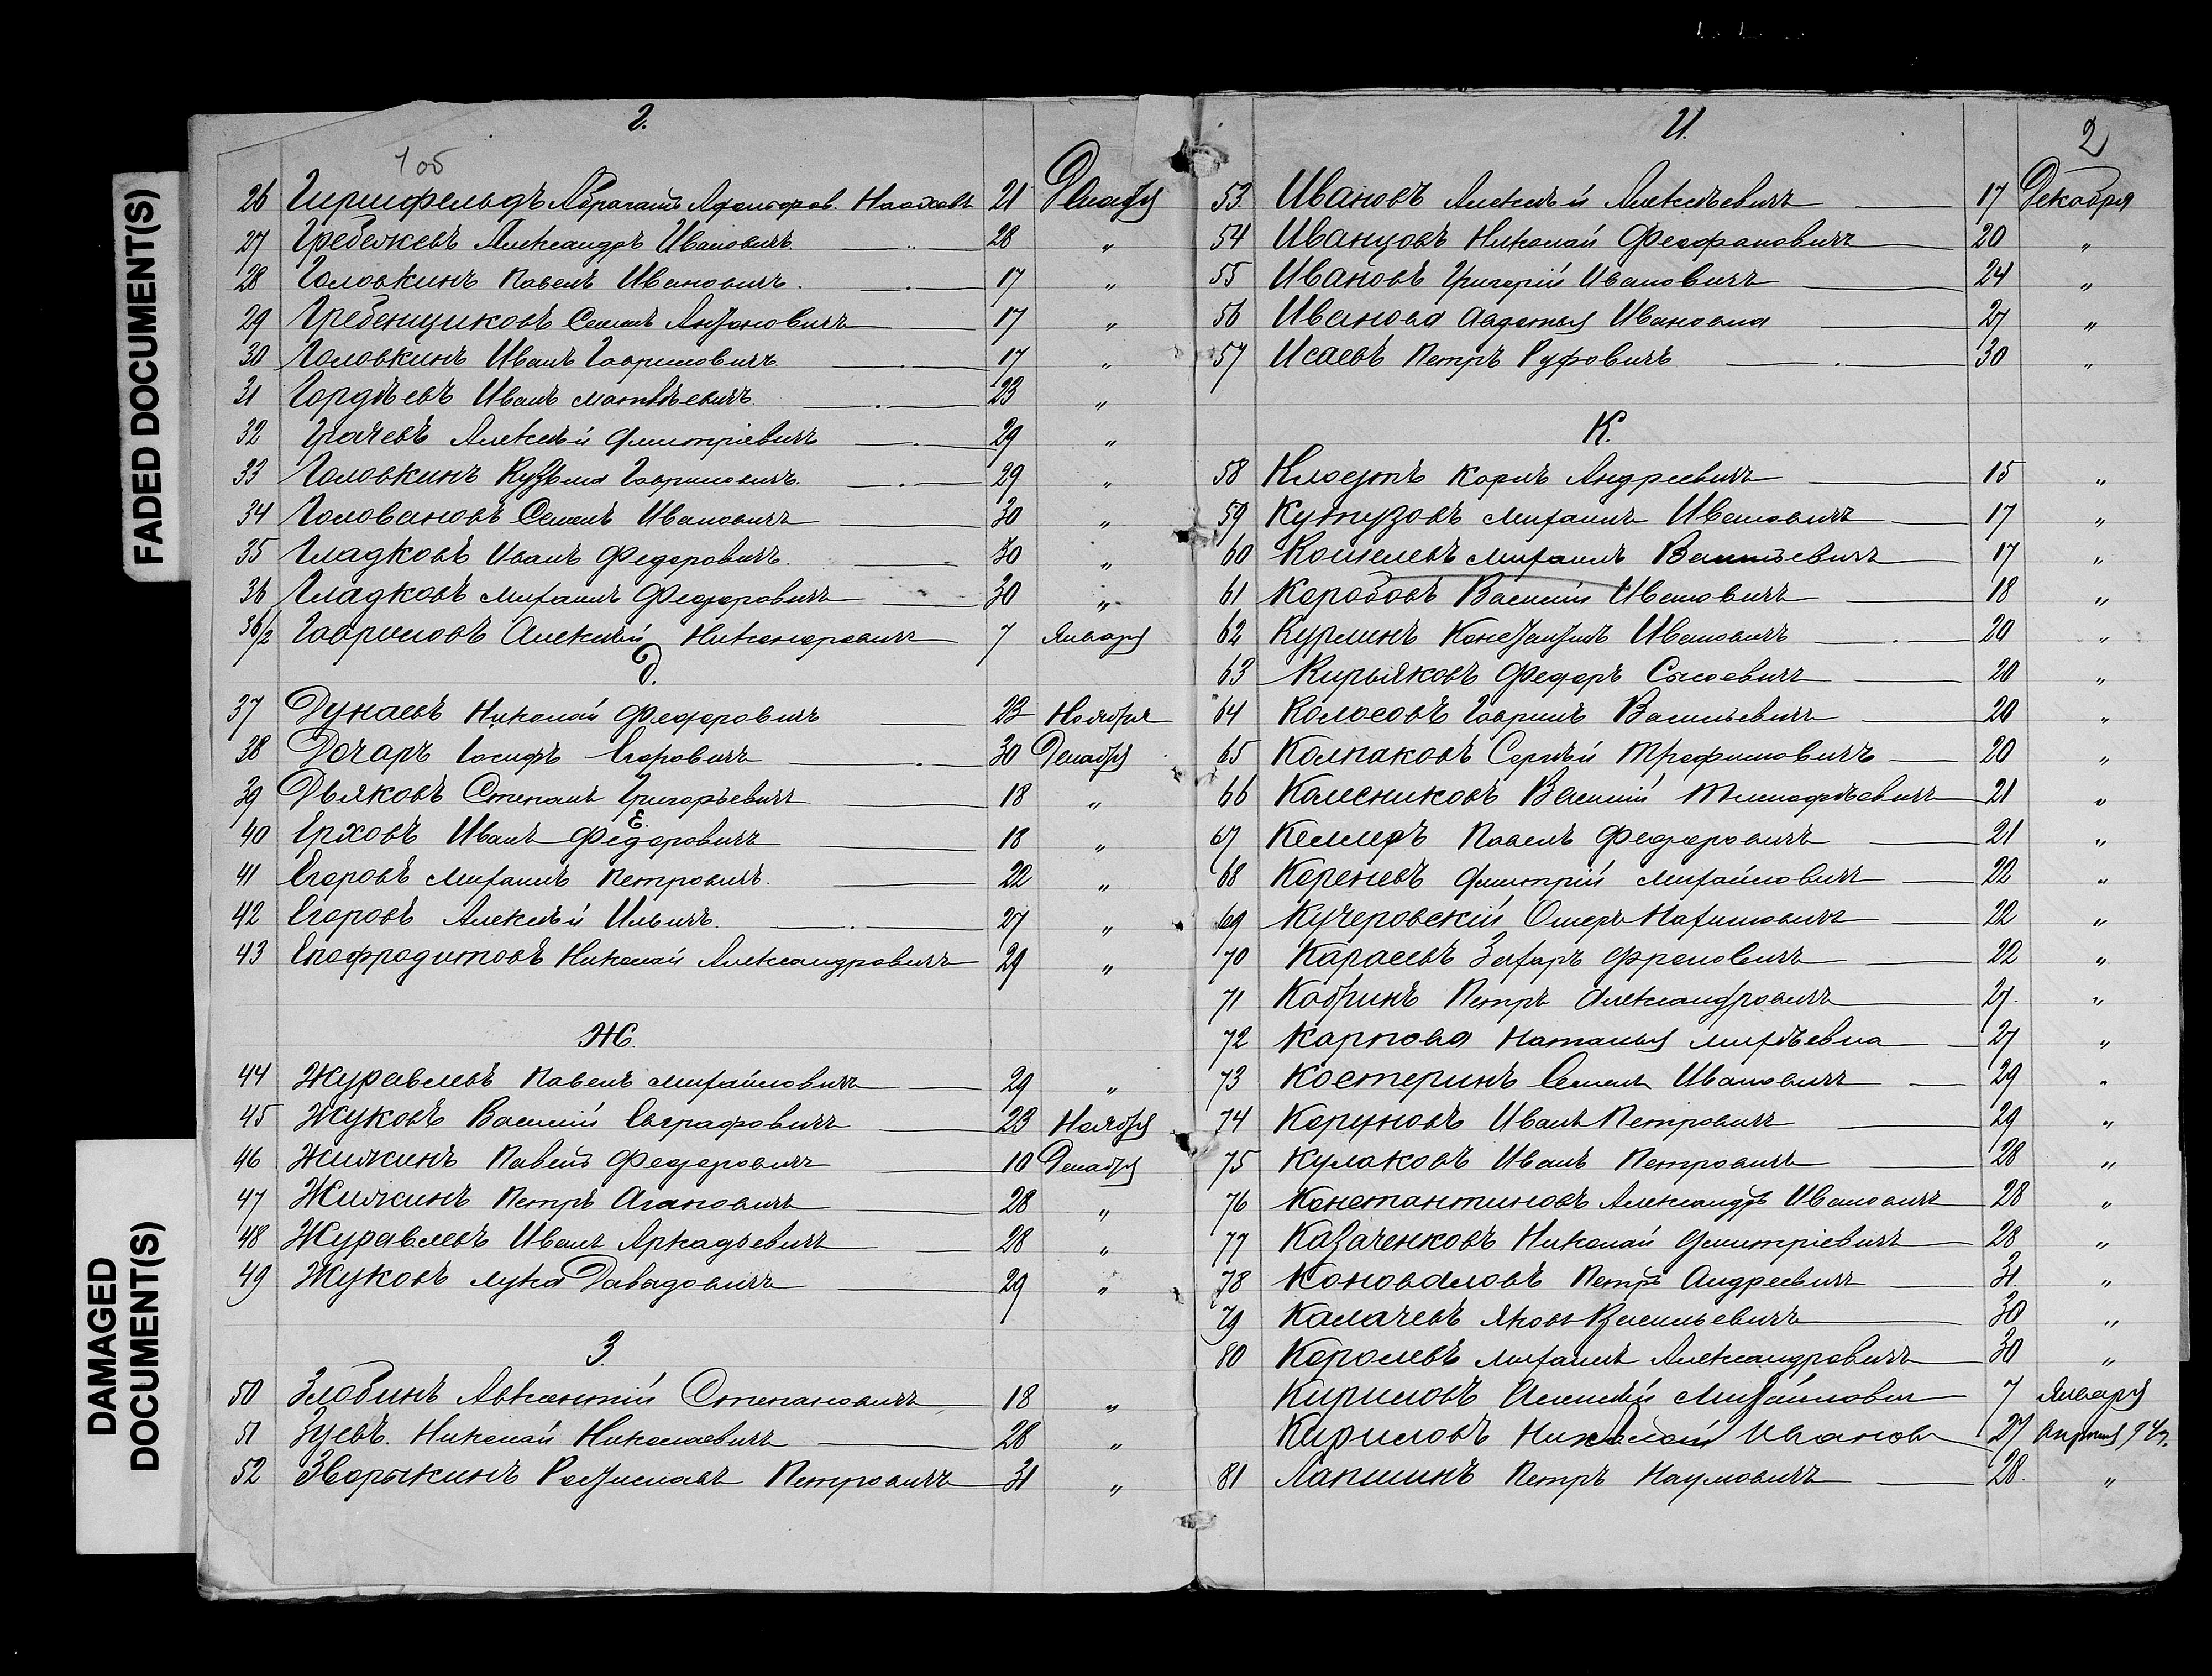 FADED DOCUMENT(S)
DAMAGED
DOCUMENT(S)
Г.
1 об
26 Гиршфельдъ 21 Декабря
27 Гребежевъ Александръ Ивановичъ 28 "
28 Головкинъ Павелъ Ивановичъ. 17 "
29 Гребенщиковъ Семенъ Антоновичъ 17 "
30 Головкинъ Иванъ Гавриловичъ. 17 "
31 Гордѣевъ Иванъ Матвѣевичъ. 23 "
32 Грачевъ Алексѣй Дмитріевичъ 29 "
33 Головкинъ Кузьма Гавриловичъ. 29 "
34 Головановъ Семенъ Ивановичъ 30 "
35 Гладковъ Иванъ Федоровичъ. 30 "
36 Гладковъ Михаилъ Федоровичъ 30 "
36/2 Гавриловъ Алексѣй Никаноровичъ 7 Января
Д.
37 Дунаевъ Николай Федоровичъ 23 Ноября
38 Дочаръ Іосифъ Егоровичъ 30 Декабря
39 Дьяковъ Степанъ Григорьевичъ 18 "
Е.
40 Ерховъ Иванъ Федоровичъ 18 "
41 Егоровъ Михаилъ Петровичъ. 22 "
42 Егоровъ Алексѣй Ильичъ. 27 "
43 Епафродитовъ Николай Александровичъ 29 "
Ж.
44 Журавлевъ Павелъ Михайловичъ 29 "
45 Жуковъ Василій Евграфовичъ 23 Ноября
46 Жилкинъ Павелъ Федоровичъ 10 Декабря
47 Жилкинъ Петръ Агаповичъ 28 "
48 Журавлевъ Иванъ Аркадьевичъ 28 "
49 Жуковъ Лука Давыдовичъ 29 "
З.
50 Злобинъ Авксентій Степановичъ 18 "
51 Зуевъ. Николай Николаевичъ 28 "
52 Зворыкинъ Ростиславъ Петровичъ 31 "
И.
2
53. Ивановъ Алексѣй Алексѣевичъ 17 Декабря
54 Иванцовъ Николай Феофановичъ 20 "
55 Ивановъ Григорій Ивановичъ 24 "
56 Иванова Авдотья Ивановна 27 "
57 Исаевъ Петръ Руфовичъ 30 "
К.
58 Карлъ Андреевичъ 15 "
59 Кутузовъ Михаилъ Ивановичъ 17 "
60 Кошелевъ Михаилъ Васильевичъ 17 "
61 Коробовъ Василій Ивановичъ 18 "
62 Курлинъ Константинъ Ивановичъ 20 "
63 Кирьяковъ Федоръ Сысоевичъ 20 "
64 Колосовъ Гавріилъ Васильевичъ 20 "
65 Колпаковъ Сергѣй Трофимовичъ 20 "
66 Колесниковъ Василій Тимофѣевичъ 21 "
67 Келлеръ Павелъ Федоровичъ 21 "
68 Кореневъ Дмитрій Михайловичъ 22 "
69 Кучеровскій Ошеръ 22 "
70 Караевъ Захаръ Фроловичъ 22 "
71 Кобринъ Петръ Александровичъ 27. "
72 Карпова Наталья Михѣевна 27 "
73 Костеринъ Семенъ Ивановичъ 29 "
74 Коруновъ Иванъ Петровичъ 29 "
75 Кулаковъ Иванъ Петровичъ 28 "
76 Константиновъ Александръ Ивановичъ 28 "
77 Казаченковъ Николай Дмитріевичъ 28 "
78 Коноваловъ Петръ Андреевичъ 31. "
79 Калачевъ Яковъ Васильевичъ 30 "
80 Королевъ Михаилъ Александровичъ 30 "
Кириловъ Алексѣй Михайлович 7 Января
Кириловъ Николай Иванов 27 Апреля
81 Лапшинъ Петръ Наумовичъ 28. "